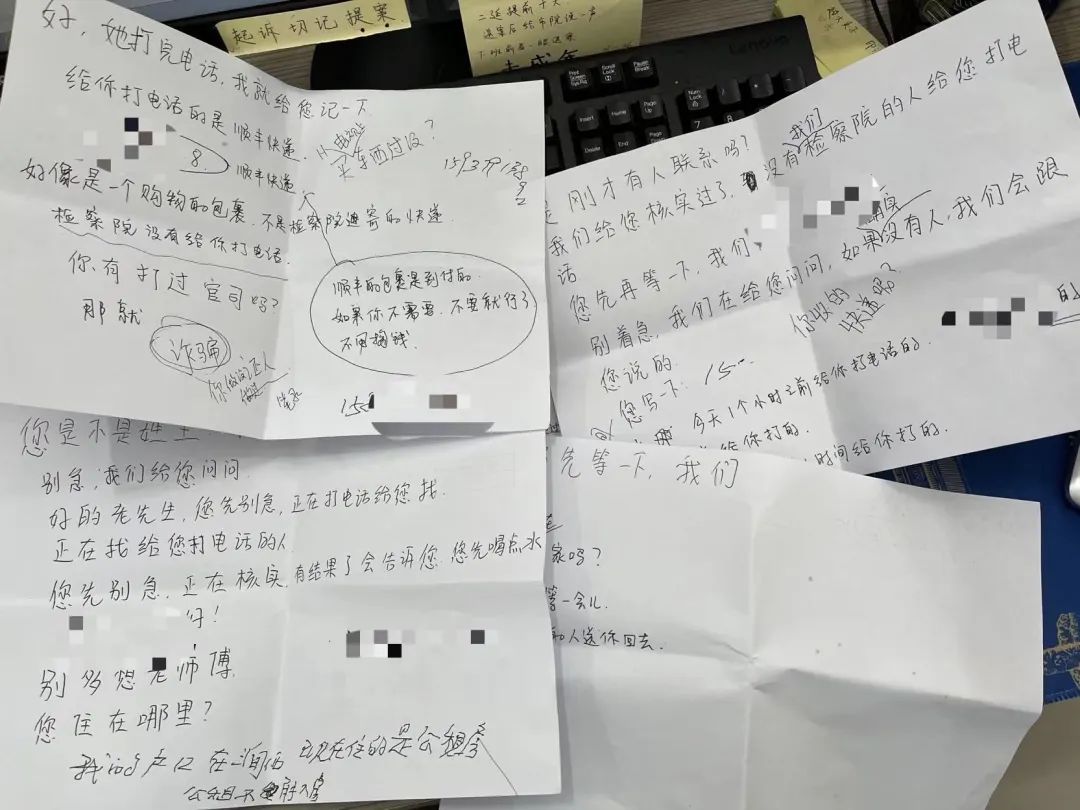 起诉切记提案.
二延提前十天
退案后给市院说一声
Lenovo
Print Screen SysRq
Scroll Lock
Pause Break
Insert
Home
Page Up
Num Lock
End
好,她打完电话,我就给您记一下
给你打电话的是顺丰快递.
买东西过没?
8.
顺丰快递.
好像是一个购物的包裹.不是检察院邮寄的快递.
检察院没有给你打电话.
你有打过官司吗?
那就
诈骗
你做过证人
顺丰的包裹是到付的.
如果你不需要.不要就行了
不用掏钱.
刚才有人联系吗?
我们给您核实过了,没有检察院的人给您打电
我们
话
您先再等一下,我们
别着急,我们在给您问问,如果没有人,我们会跟
您说的.
你收的
快递吗?
您写一下:
今天1个小时之前给你打电话的.
给你打的.
时间给你打的.
您是不是姓王
别急,我们给您问问.
好的老先生,您先别急,正在打电话给您找.
正在找给您打电话的人
您先别急,正在核实,有结果了会告诉您,您先喝点水
好!
别多想老师傅.
您住在哪里?
现在住的是公租房
先等一下,我们
家吗?
等一会儿.
和人送你回去.